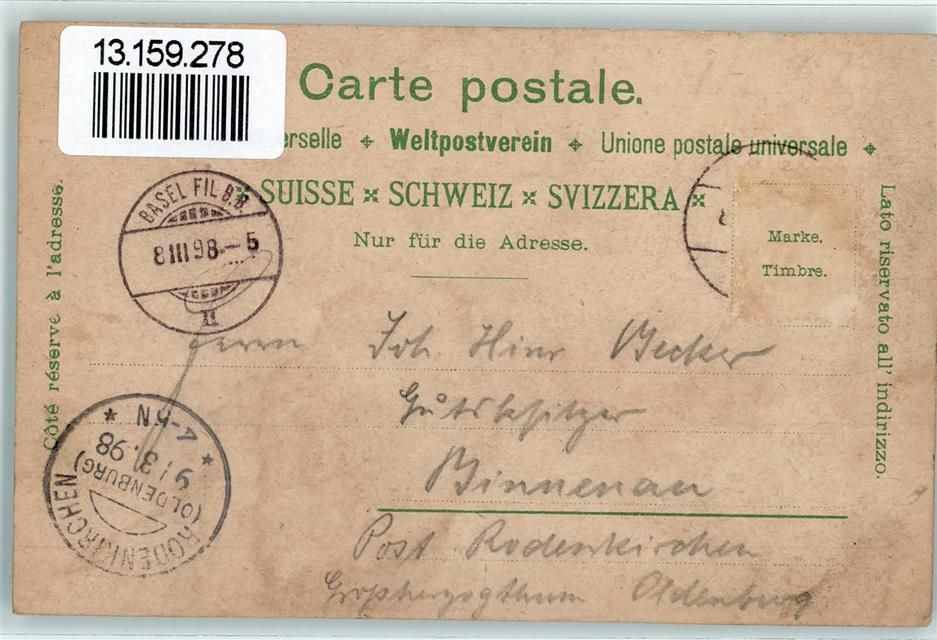 13.159.278
Carte postale.
erselle Weltpostverein Unione postale universale
SUISSE × SCHWEIZ × SVIZZERA ×
Nur für die Adresse.
Marke.
Timbre.
Côté réservé à l'adresse.
Lato riservato all' indirizzo.
BASEL FIL B.B.
8 III 98.–5
II
Herrn Joh. Hinr Becker
Gutsbesitzer
Binnenau
Post Rodenkirchen
Großherzogthum Oldenburg
RODENKIRCHEN
(OLDENBURG)
9/3.98
4-5N